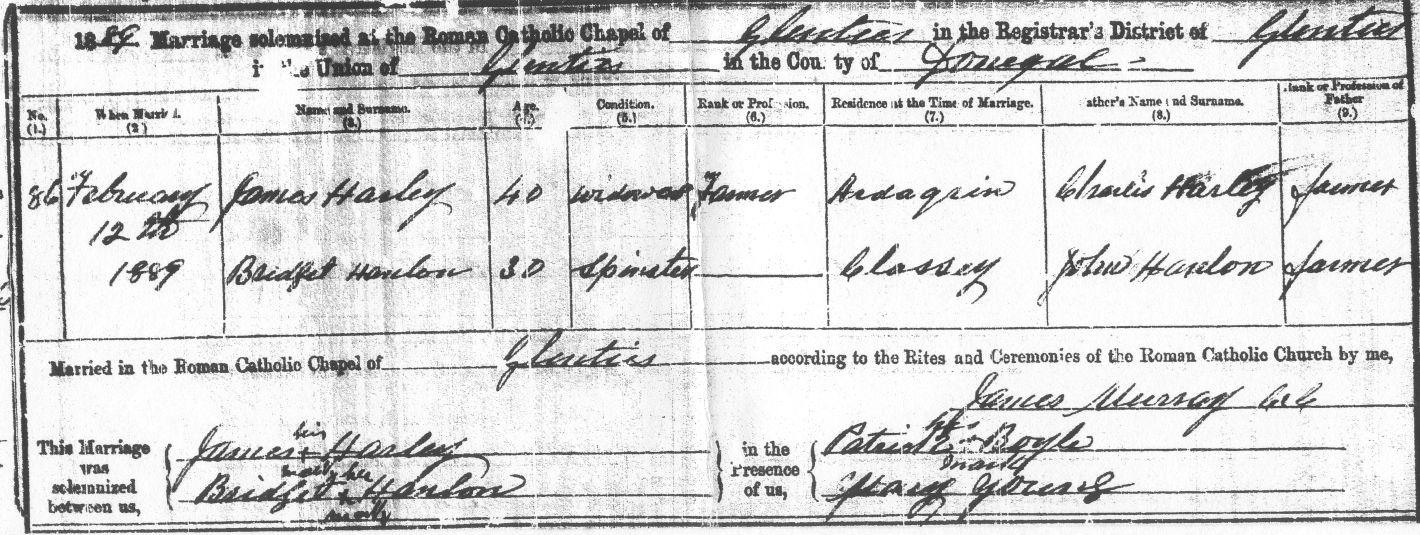 1889 Marriage solemnized at the Roman Catholic Chapel of Glenties in the Registrar's District of Glenties
in the Union of Glenties in the County of Donegal
No. When Married. Name and Surname. Age. Condition. Rank or Profession. Residence at the Time of Marriage. Father's Name and Surname. Rank or Profession of Father
(1.) (2) (3.) (4.) (5.) (6.) (7.) (8.) (9.)
86 February James Harley 40 Widower Farmer Ardagrin Charles Harley farmer
12th
1889 Bridget Hanlon 30 Spinster Classey John Hanlon farmer
Married in the Roman Catholic Chapel of Glenties according to the Rites and Ceremonies of the Roman Catholic Church by me,
James Murray CC
This Marriage was solemnized between us,
James his x mark Harley
Bridget her x mark Hanlon
in the Presence of us,
Patrick his x mark Boyle
Mary Young